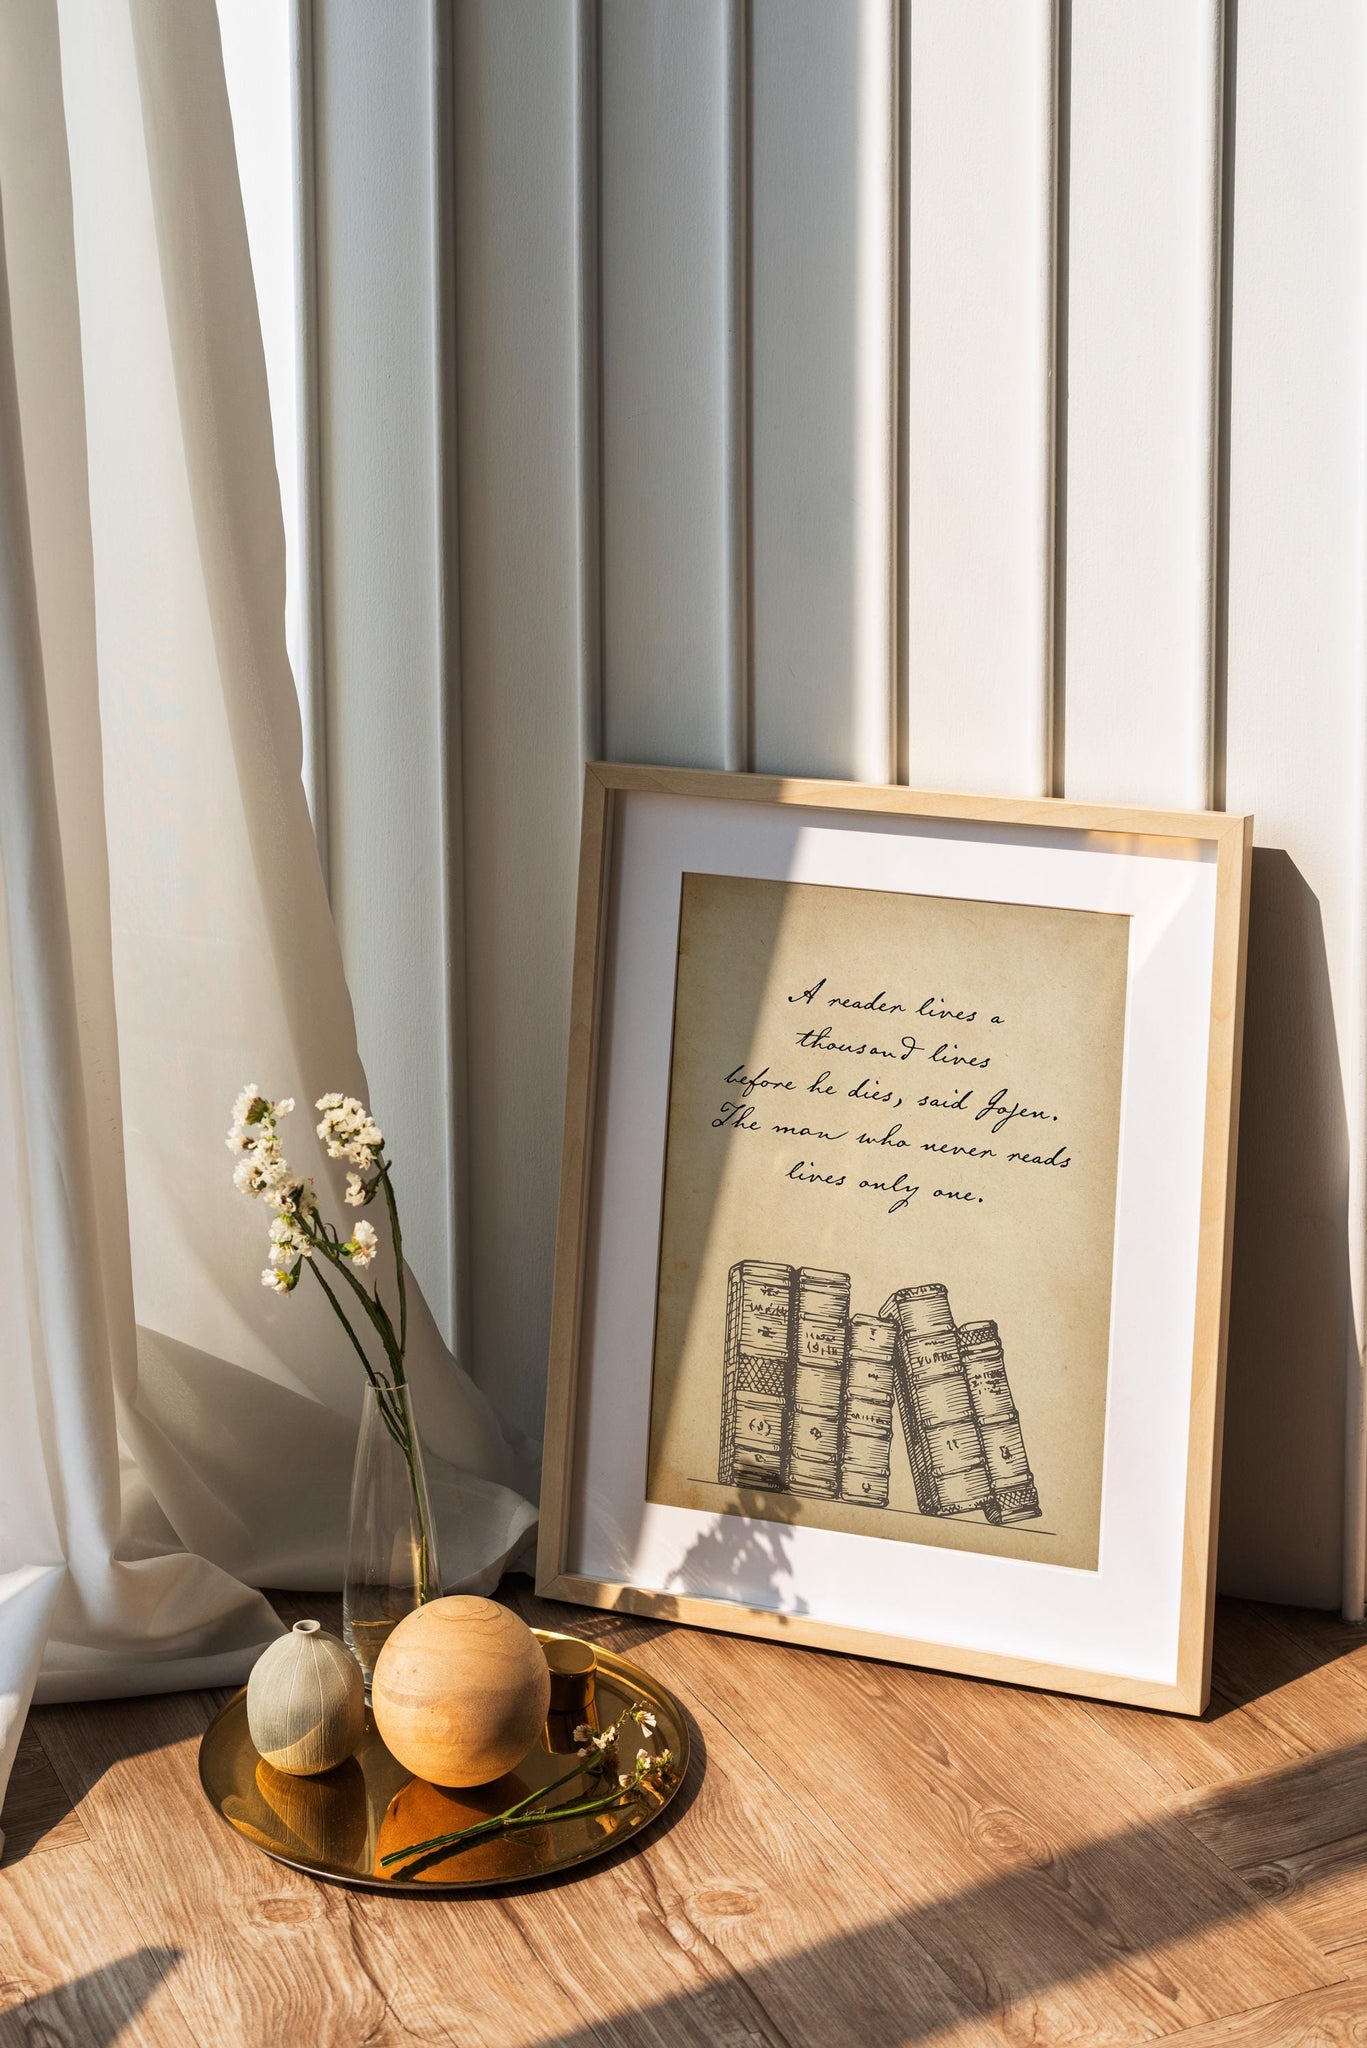 A reader lives a
thousand lives
before he dies, said Jojen.
The man who never reads
lives only one.